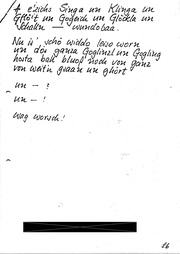 A einichs Singa un Klinga un
un Gogeich un Glöckla un
Schalln — wundobaa.
Nu is' schö widdo leiso worn
un der ganza Goglinzl un Gogling
hosta ball bluoß noch von ganz
von weit'n gsaan un ghört
un — ?
un — !
Wag worsch!
86